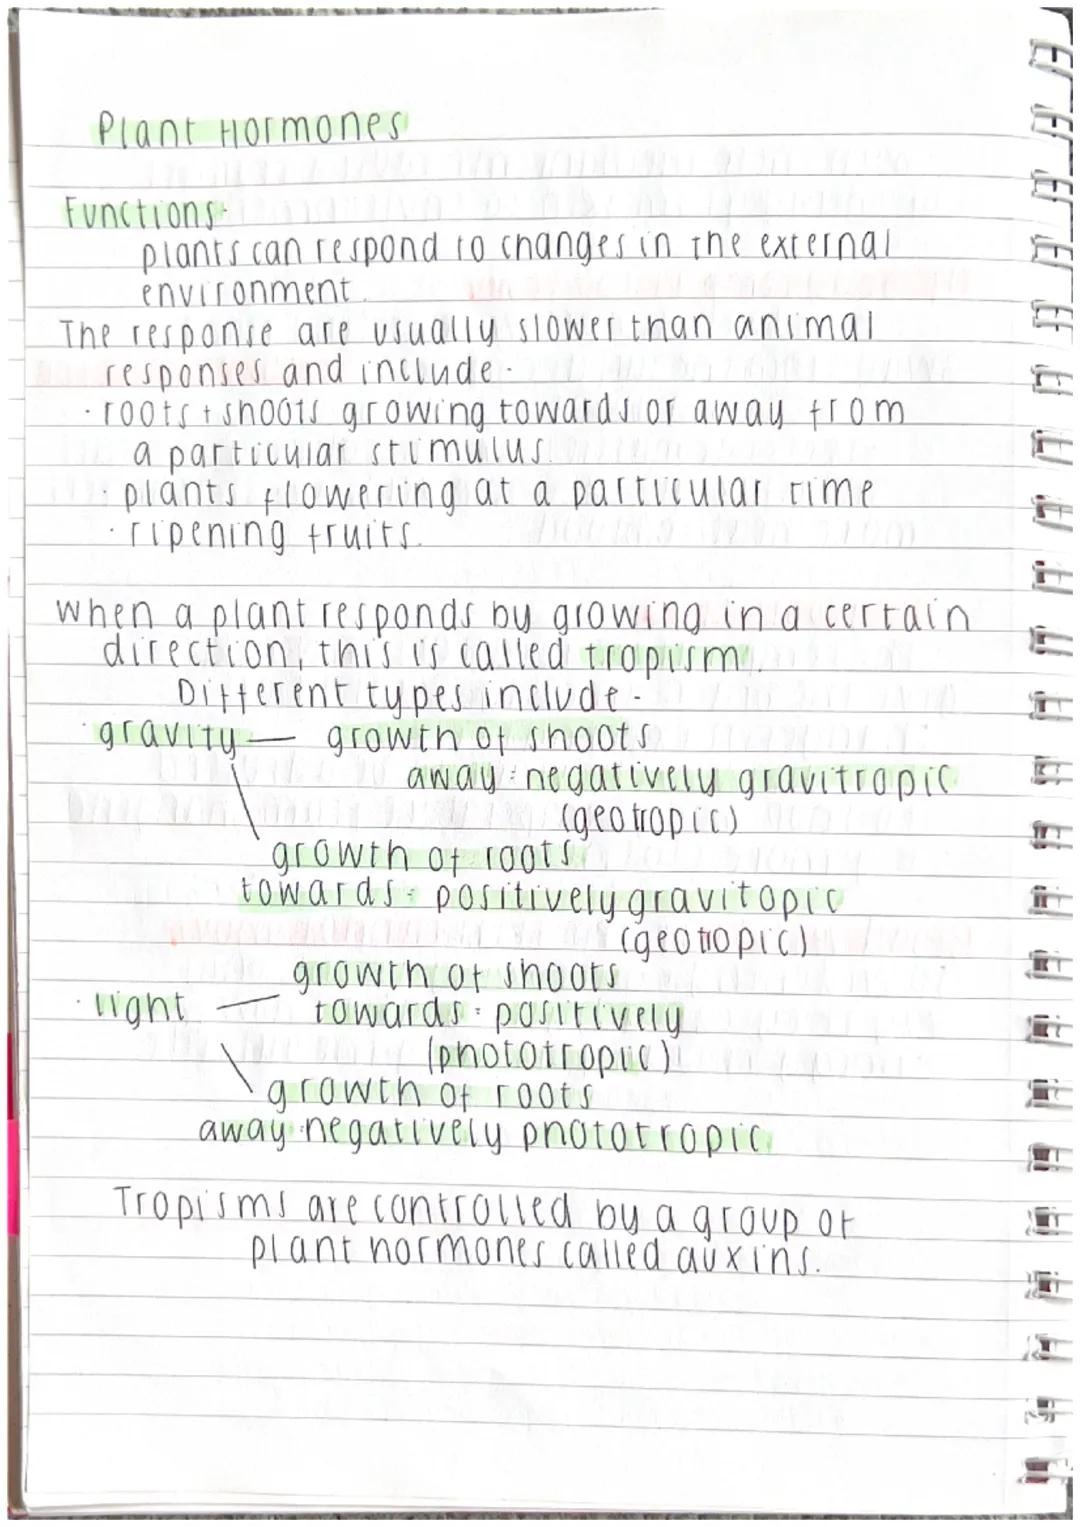 Plant Hormones
Functions-
plants can respond to changes in the external
environment.
The response are usually slower than animal
responses and include-
· roots + shoots growing towards or away from
a particular stimulus.
· plants flowering at a particular time
· ripening fruits.
When a plant responds by growing in a certain
direction, this is called tropism.
Different types include-
· gravity — growth of shoots
away: negatively gravitropic
(geotropic)
growth of roots
towards: positively gravitopic
(geotropic)
growth of shoots
· light — towards: positively
(phototropic)
growth of roots
away: negatively phototropic.
Tropisms are controlled by a group of
plant hormones called auxins.